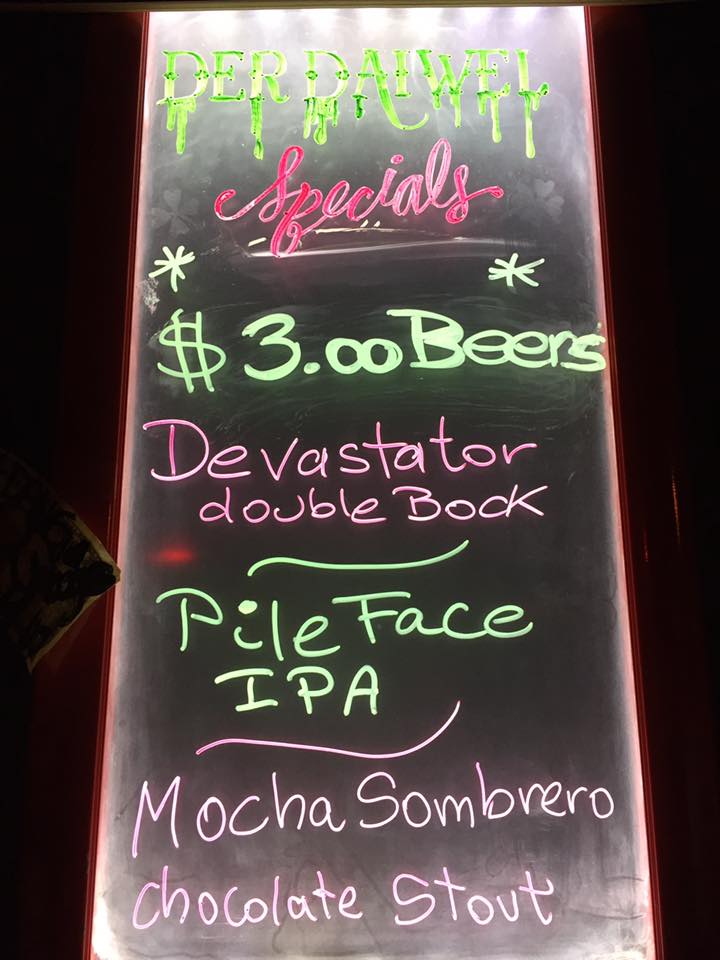 DER DAIWEL
Specials
* *
$3.00 Beers
Devastator
double Bock
Pile Face
IPA
Mocha Sombrero
chocolate Stout